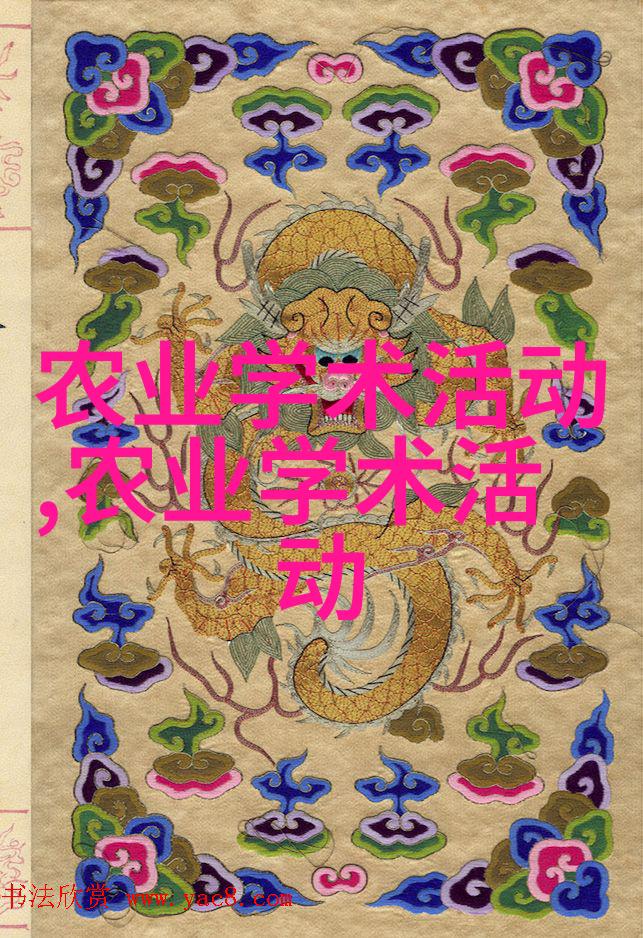 农业学术活动
,农业学术活
动
书法欣赏 www.yac8.com